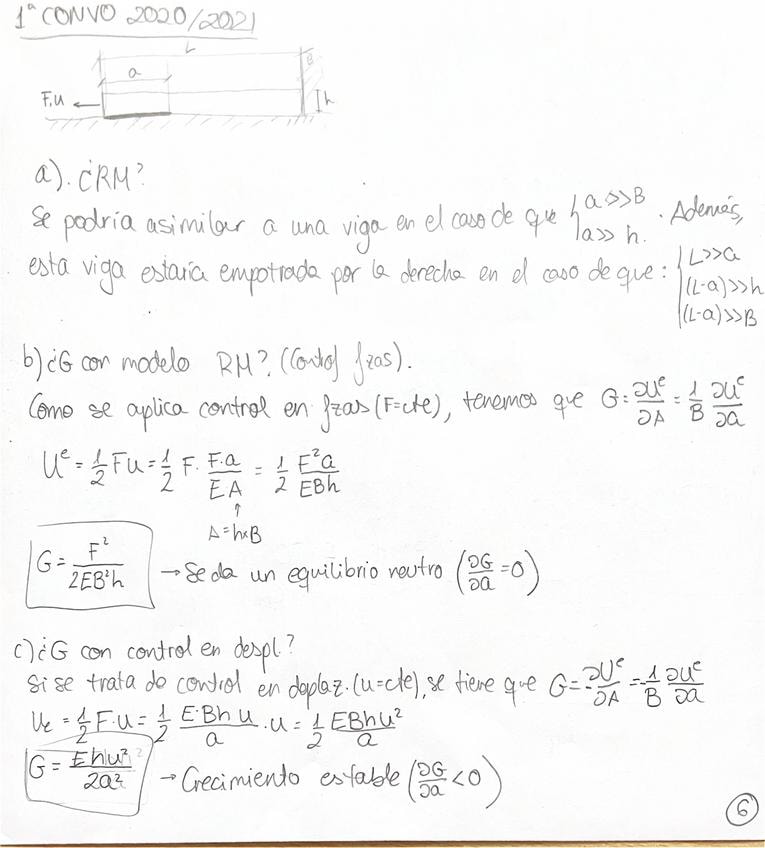 1ª CONVO 2020/2021
L
a
B
F,u
h
a). ¿RM?
Se podría asimilar a una viga en el caso de que { a>>B
a>> h. . Además,
esta viga estaría empotrada por la derecha en el caso de que: { L>>a
(L-a)>>h
(L-a)>>B
b) ¿G con modelo RM? (Control fzas).
Como se aplica control en fzas (F=cte), tenemos que G = ∂Uᵉ/∂A = 1/B ∂Uᵉ/∂a
Uᵉ = 1/2 Fu = 1/2 F · F·a/EA = 1/2 F²a/EBh
↑
A=h×B
G = F²/2EB²h → Se da un equilibrio neutro (∂G/∂a = 0)
c) ¿G con control en despl.?
Si se trata de control en deplaz. (u=cte), se tiene que G = -∂Uᵉ/∂A = -1/B ∂Uᵉ/∂a
Ue = 1/2 F·u = 1/2 E·Bh u/a · u = 1/2 EBhu²/a
G = Ehu²/2a² → Crecimiento estable (∂G/∂a < 0)
6